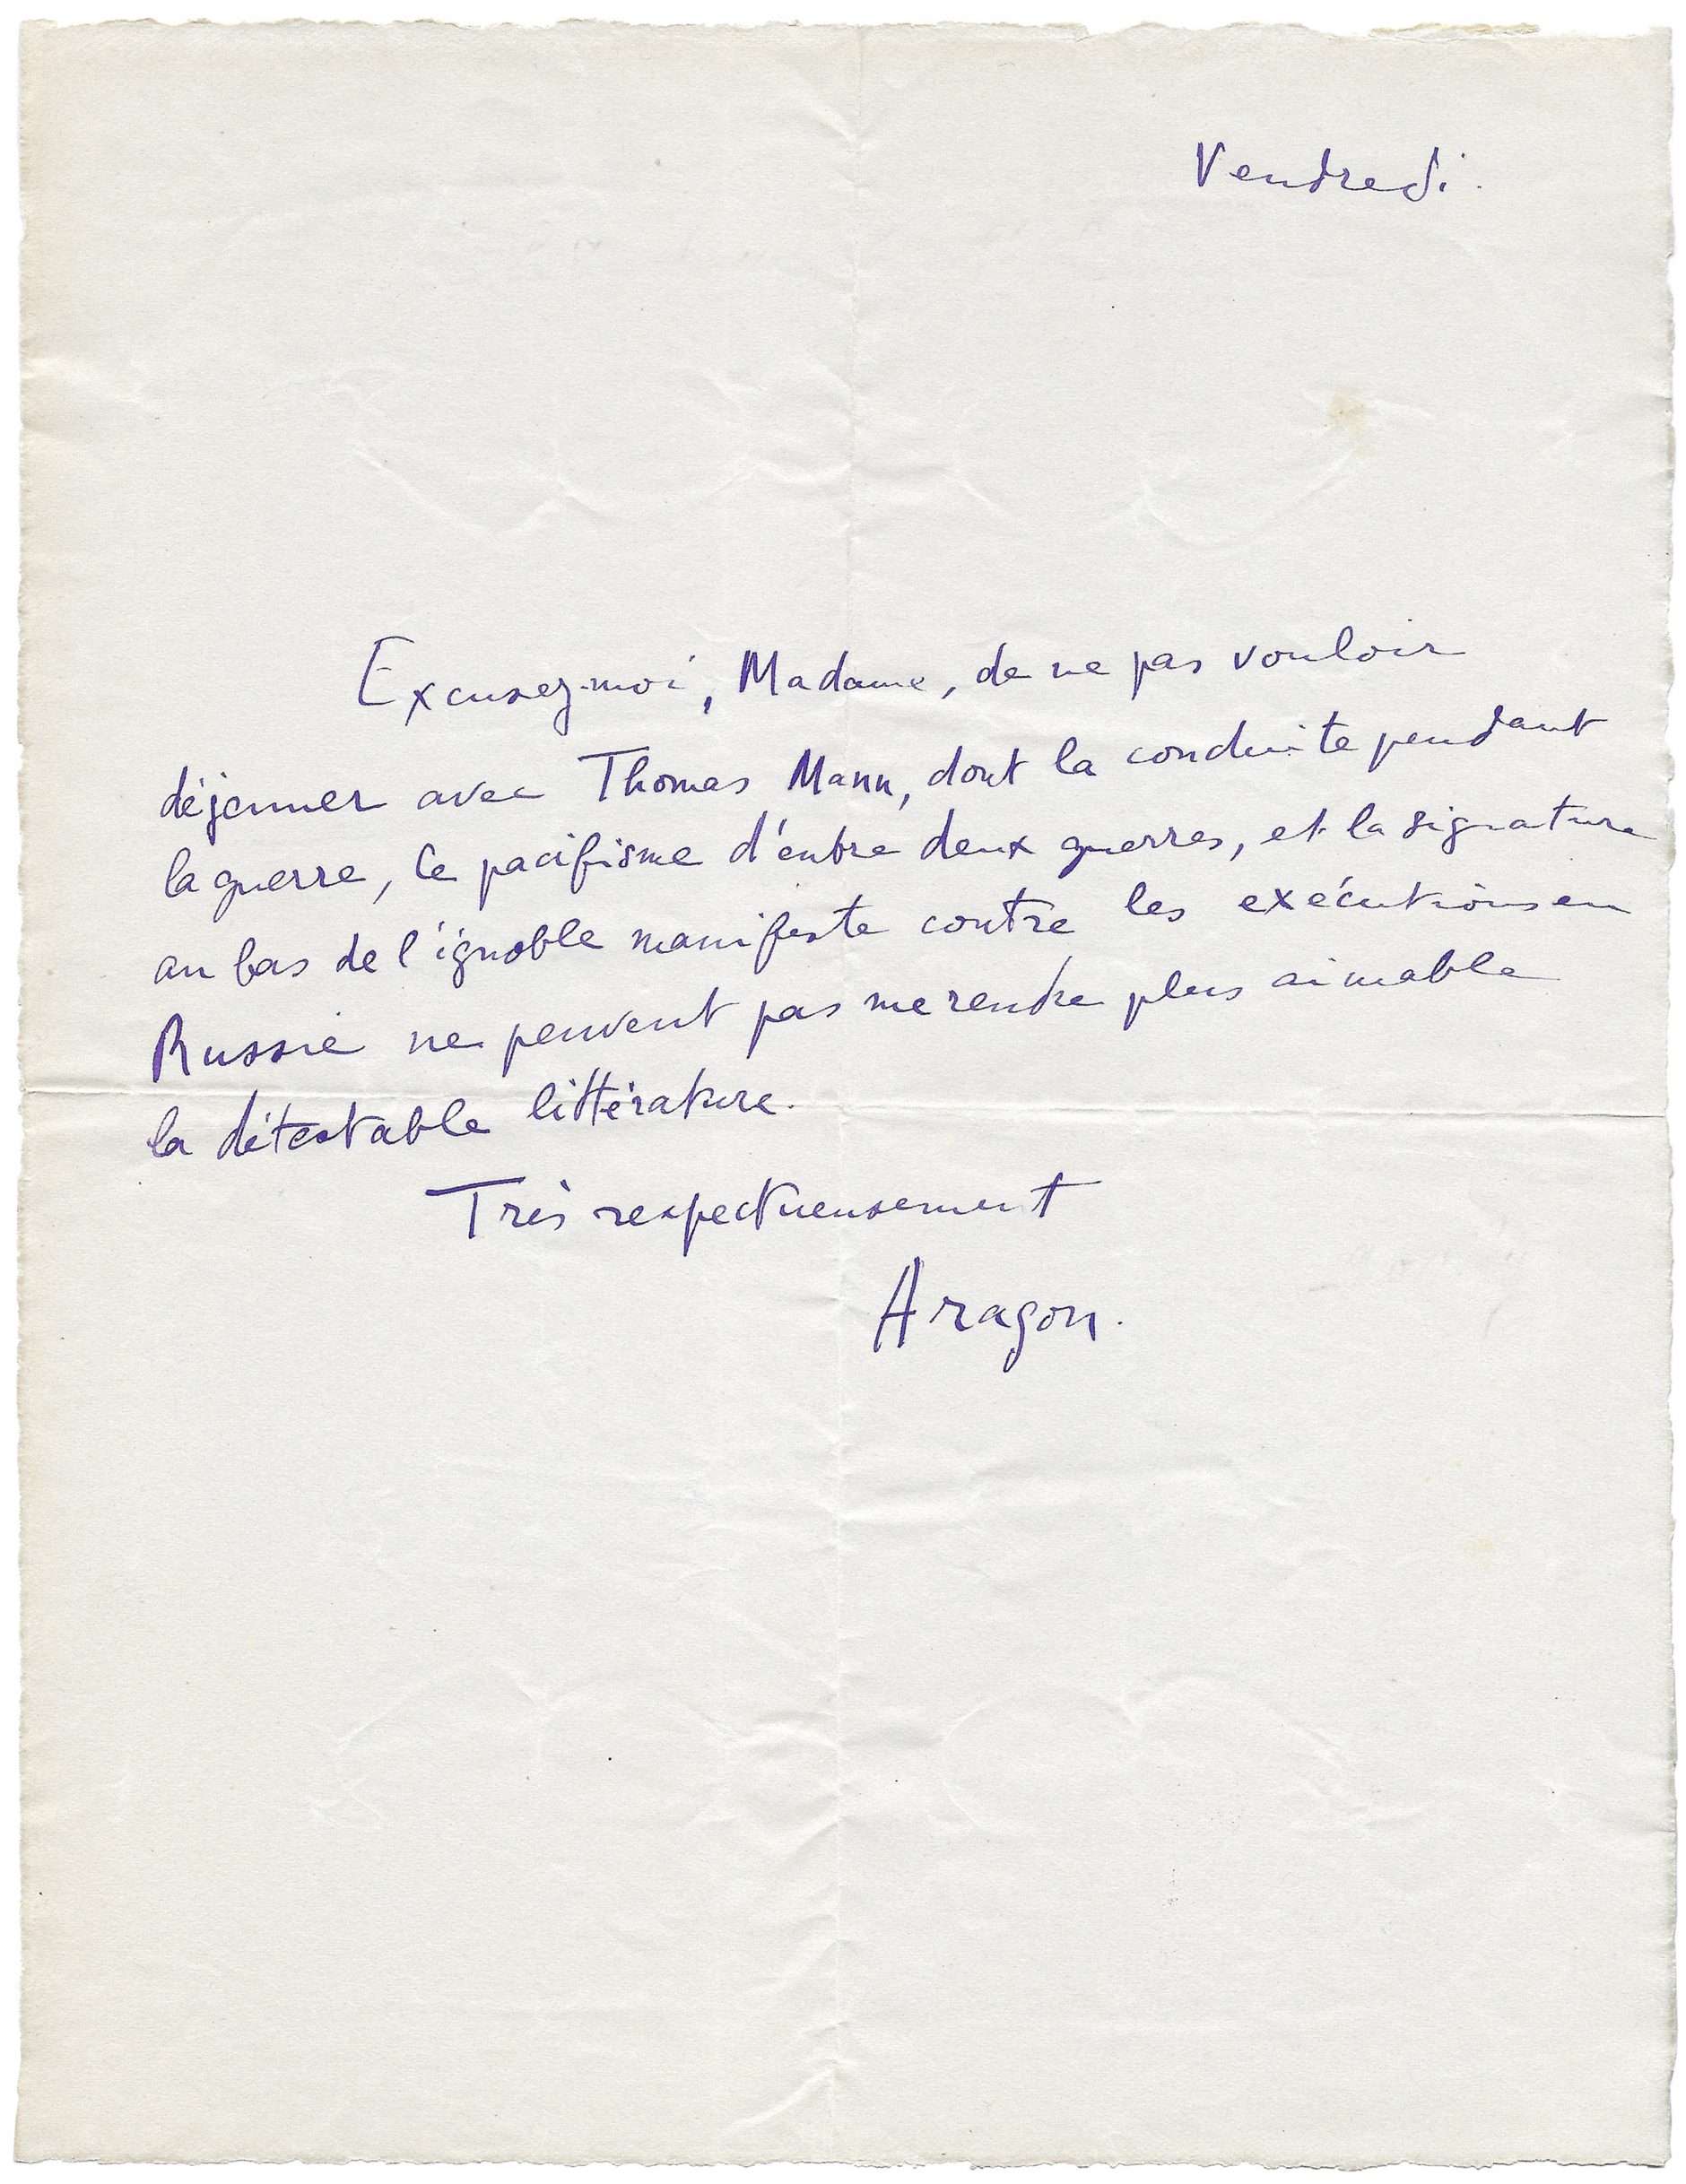 Vendredi.
Excusez-moi, Madame, de ne pas vouloir
déjeuner avec Thomas Mann, dont la conduite pendant
la guerre, le pacifisme d'entre deux guerres, et la signature
au bas de l'ignoble manifeste contre les exécutions en
Russie ne peuvent pas me rendre plus aimable
la détestable littérature.
Très respectueusement
Aragon.